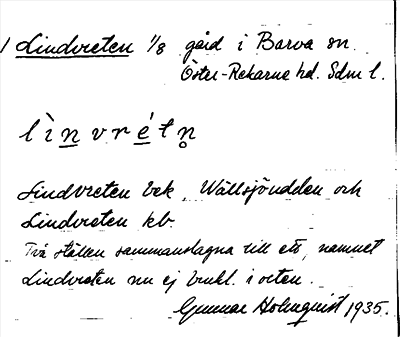 1 Lindvreten 1/8 gård i Barva sn.
Öster-Rekarne hd. Sdm l.
lìnvrétn̥
Lindvreten bek, Wållsjöudden och
Lindvreten kb.
Två ställen sammanslagna till ett, namnet
Lindvreten nu ej brukl. i orten.
Gunnar Holmquist 1935.